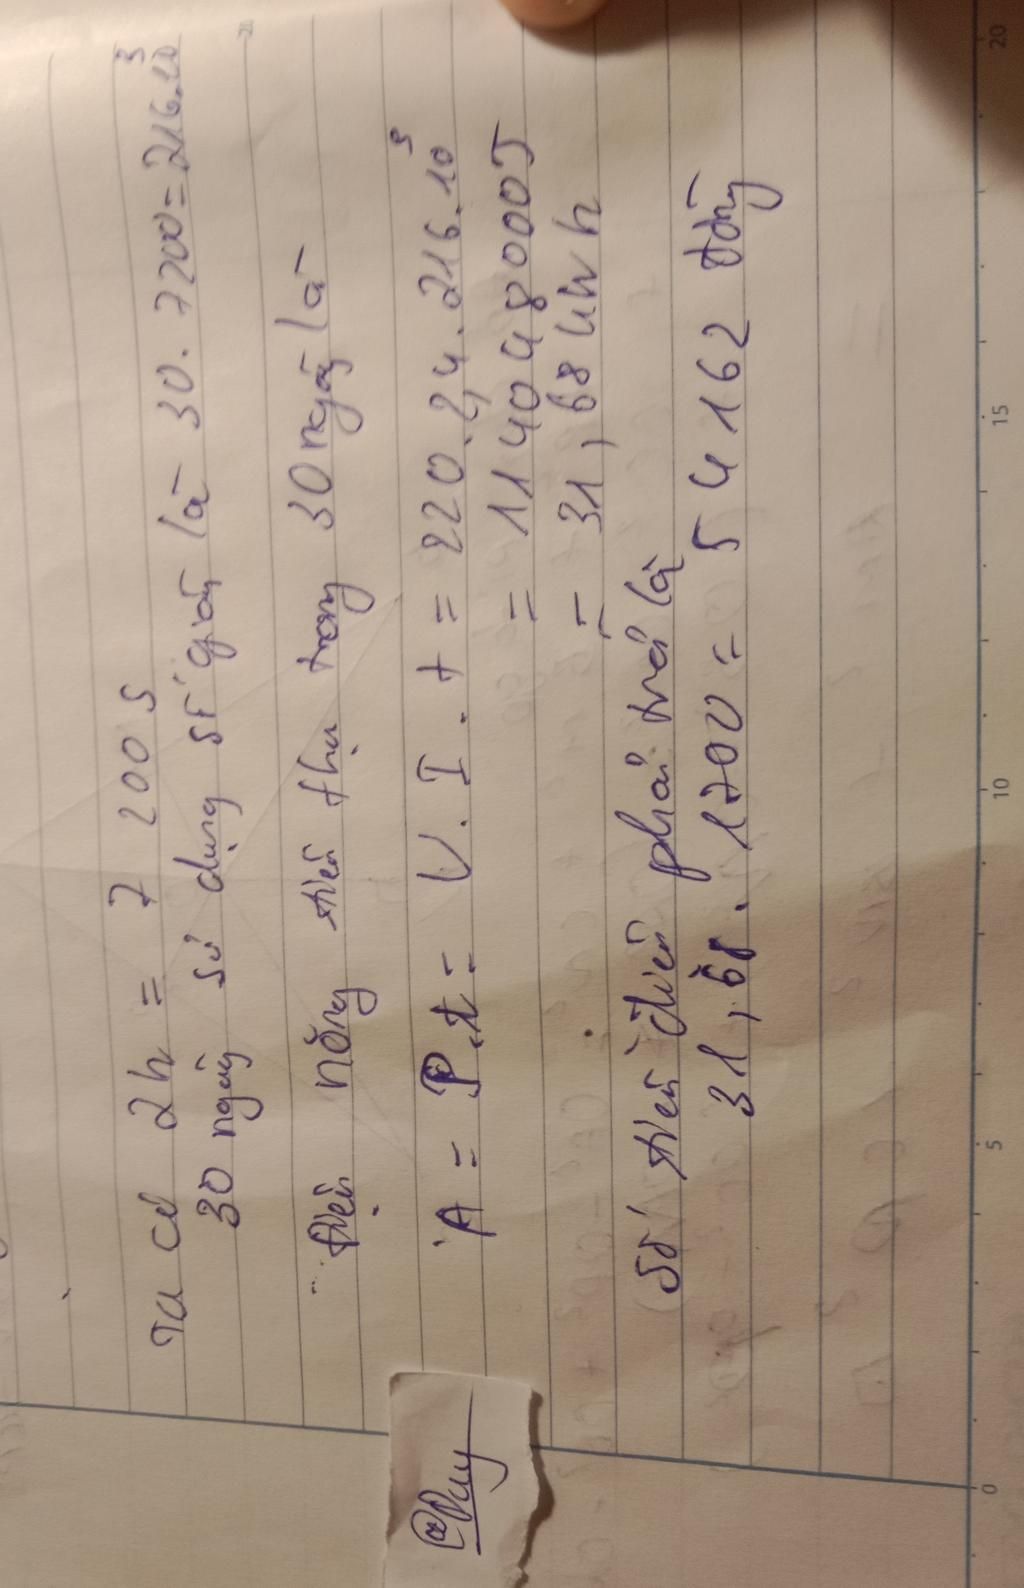 Ta có 2h = 7 200 s
30 ngày sử dụng số giây là 30. 7200 = 216.10³
Điện năng tiêu thụ trong 30 ngày là
A = P.t = U. I. t = 220. 2,4. 216.10³
= 114048000J
= 31,68 kWh
Số tiền điện phải trả là
31,68. 1700 = 5 4 162 đồng
@Duy
0 5 10 15 20